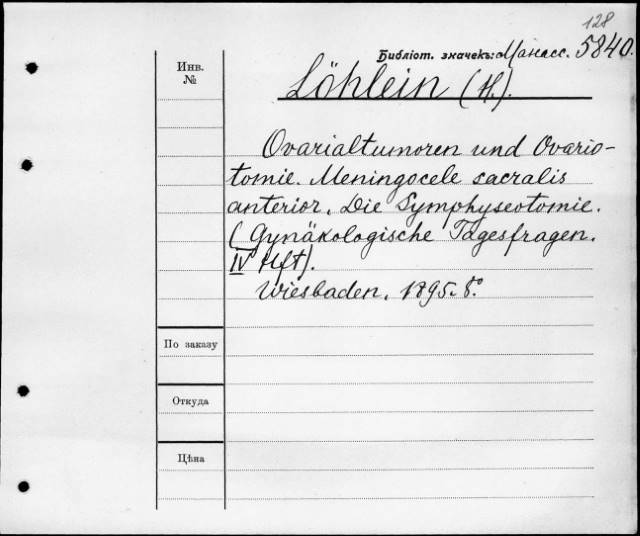 128
Библіот. значекъ: Манасс. 5840.
Инв.
№
Löhlein (H.).
Ovarialtumoren und Ovario-
tomie. Meningocele sacralis
anterior. Die Symphyseotomie.
(Gynäkologische Tagesfragen.
IV Hft).
Wiesbaden. 1895. 8°.
По заказу
Откуда
Цѣна